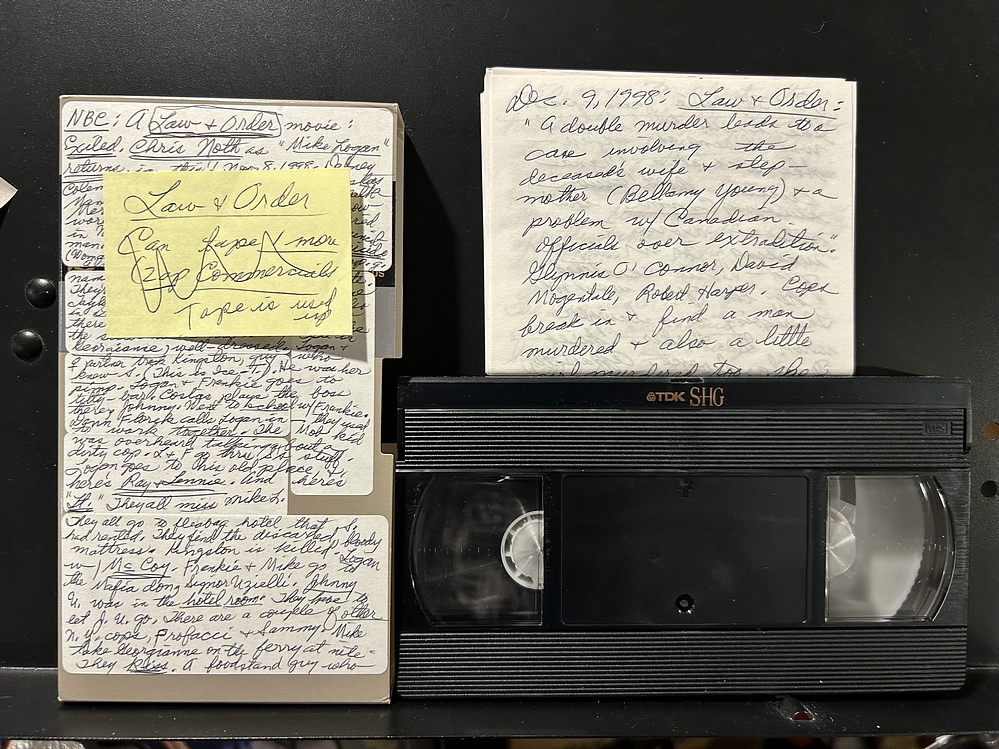 NBC: A Law & Order movie:
Exiled. Chris Noth as "Mike Logan"
returns in this! Nov. 8, 1998. Dabney
Law & Order
Can tape more
Zap Commercials
Tape is used
up
there
Georgianne, well-dressed. Logan &
partner trap Kingston, guy who
know S. (This is Ice-T.) He was her
pimp. Logan & Frankie goes to
titty-bar. Costas plays the boss
there, Johnny. Went to school w/ Frankie.
Dann Florek calls Logan in they used
to work together. The Mob kid
was overheard talking about a
dirty cop. L & F go thru IA stuff.
Logan goes to his old palace, &
here's Ray & Lennie. And here's
"Lt." They all miss Mike L.
They all go to fleabag hotel that S.
had rented. They find the discarded, bloody
mattress. Kingston is killed. Logan
w/ McCoy. Frankie & Mike go to
the Mafia don, Senor Uzielli. Johnny
U. was in the hotel room. They have to
let J. U. go. There are a couple of other
N. Y. cops, Profacci & Sammy. Mike
take Georgianne on the ferry at nite.
They kiss. A foodstand guy who
Dec. 9, 1998: Law & Order:
"A double murder leads to a
case involving the
deceased's wife & step-
mother (Bellamy Young) & a
problem w/ Canadian
officials over extradition."
Glynnis O'Connor, David
Mogentale, Robert Harper. Cops
break in & find a man
murdered & also a little
girl murdered too. She
TDK SHG